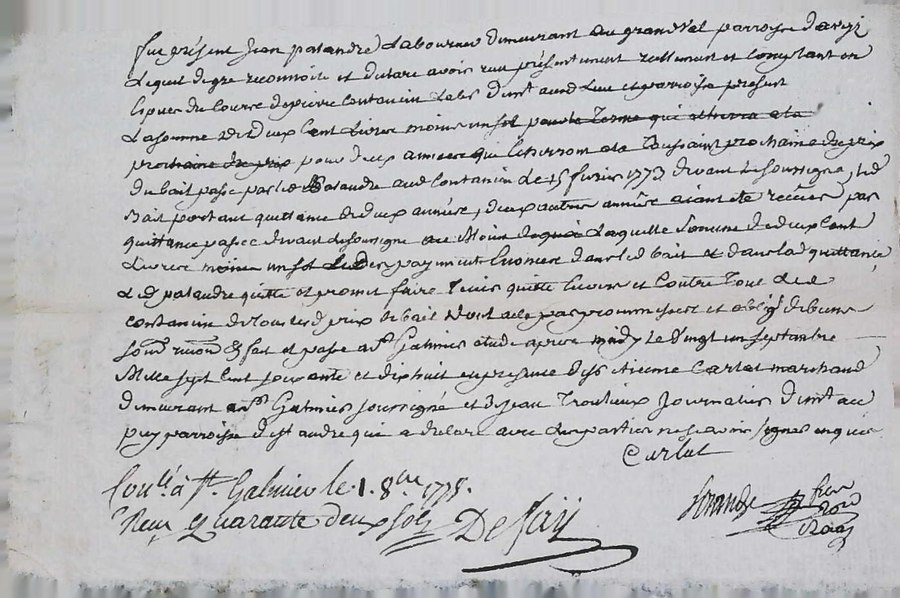 fut présent Jean palandre Laboureur demeurant au grandval parroisse d'aveizi
Lequel de gre reconnoit et declare avoir reçu présentement reellement et comptant en
Especes du Cours de pierre Contancin Lab. demt aud Lieu et parroisse présent
La somme de deux Cent Livres moins un sol pour le Terme qui echerra a la
prochaine du prix pour deux années qui Echerront a la Toussaint prochaine du prix
du bail passé par led Palandre aud Contancin le 15 fevrier 1773 devant le soussigné, led
Bail portant quittance de deux années, deux autres années aiant eté reçües par
quittance passée devant le soussigné au Mois Laquelle somme de deux Cent
Livres moins un sol Led payement enoncé dans led bail & dans lad quittance
Led palandre quitte et promet faire Tenir quitte Envers et Contre Tous led
Contancin de tous led prix de bail Dont acte par promesses et oblig. de biens
soum. renon. & fait et passé a St Galmier etude apres midy Le Vingt un septembre
Mille sept Cent soixante et dix huit en presence de Sr Etienne Carlat marchand
demeurant a St Galmier soussigné et de Jean Journalier demt au
puy parroisse de St andré qui a declaré avec Les parties ne sçavoir signer enquis
Carlat
Con.lé à St. Galmier le 1. 8bre 1778.
Reçu Quarante deux sols